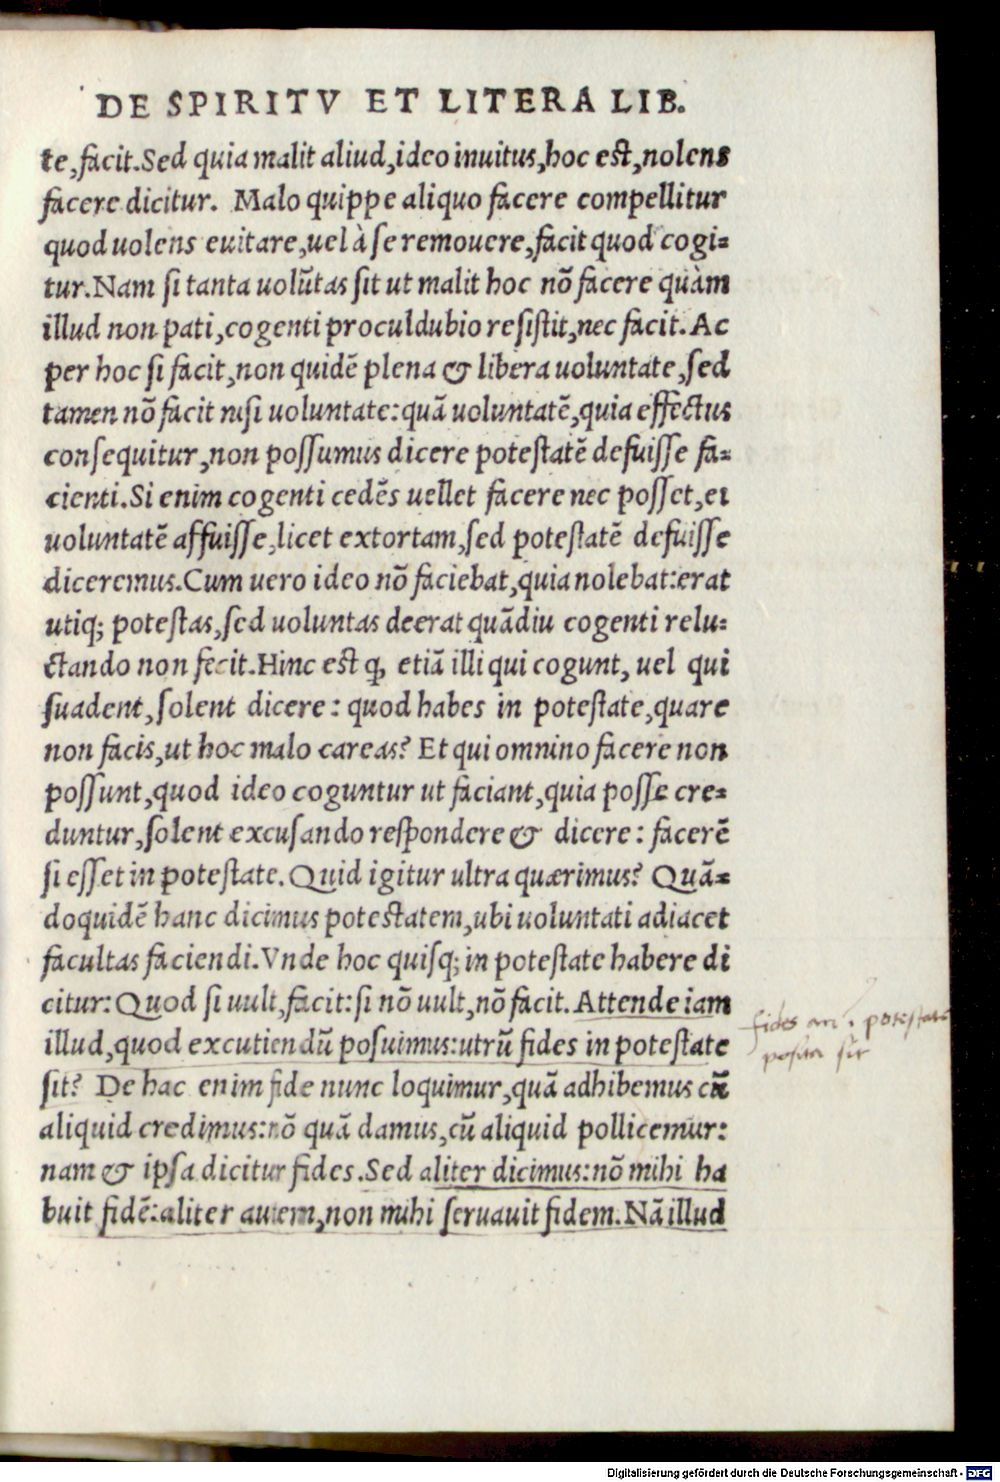 DE SPIRITV ET LITERA LIB.
te,facit.Sed quia malit aliud,ideo inuitus,hoc est,nolens
facere dicitur. Malo quippe aliquo facere compellitur
quod uolens euitare,uel à se remouere,facit quod cogi=
tur.Nam si tanta uolūtas sit ut malit hoc nō facere quàm
illud non pati,cogenti proculdubio resistit,nec facit.Ac
per hoc si facit,non quidē plena & libera uoluntate,sed
tamen nō facit nisi uoluntate:quā uoluntatē,quia effectus
consequitur,non possumus dicere potestatē defuisse fa=
cienti.Si enim cogenti cedēs uellet facere nec posset,ei
uoluntatē affuisse,licet extortam,sed potestatē defuisse
diceremus.Cum uero ideo nō faciebat,quia nolebat:erat
utiq; potestas,sed uoluntas deerat quādiu cogenti relu=
ctando non fecit.Hinc est ꝙ, etiā illi qui cogunt, uel qui
suadent,solent dicere: quod habes in potestate,quare
non facis,ut hoc malo careas? Et qui omnino facere non
possunt,quod ideo coguntur ut faciant,quia posse cre=
duntur,solent excusando respondere & dicere: facerē
si esset in potestate.Quid igitur ultra quærimus? Quā=
doquidē hanc dicimus potestatem,ubi uoluntati adiacet
facultas faciendi.Vnde hoc quisq; in potestate habere di
citur:Quod si uult,facit:si nō uult,nō facit.Attende iam
illud,quod excutiendū posuimus:utrū fides in potestate
sit? De hac enim fide nunc loquimur,quā adhibemus cū
aliquid credimus:nō quā damus,cū aliquid pollicemur:
nam & ipsa dicitur fides.Sed aliter dicimus:nō mihi ha
buit fidē:aliter autem,non mihi seruauit fidem.Nā illud
fides an i potestate
posita sit
Digitalisierung gefördert durch die Deutsche Forschungsgemeinschaft - DFG